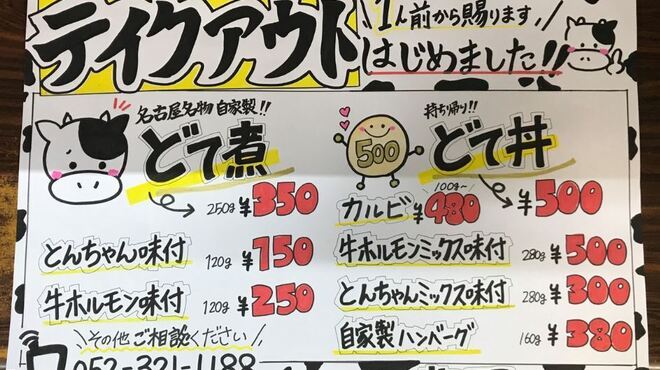 テイクアウト
1人前から賜ります
はじめました!!
名古屋名物 自家製!!
どて煮
250g ¥350
とんちゃん味付 120g ¥150
牛ホルモン味付 120g ¥250
その他ご相談ください
052-321-1188
500
持ち帰り!!
どて丼
¥500
カルビ 100g~ ¥480
牛ホルモンミックス味付 280g ¥500
とんちゃんミックス味付 280g ¥300
自家製ハンバーグ 160g ¥380